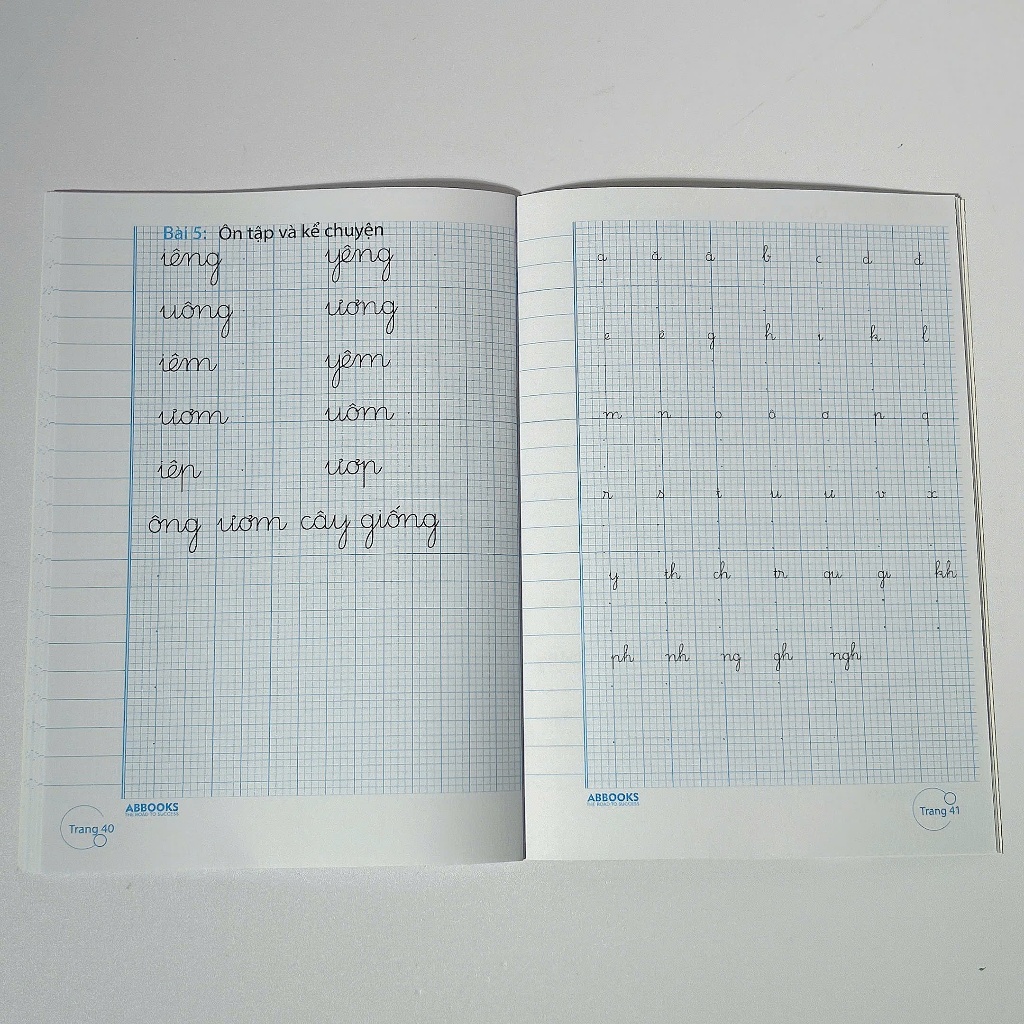 Bài 5: Ôn tập và kể chuyện
iêng yêng
uông ương
iêm yêm
ươm uôm
iêp ươp
ông ươm cây giống
ABBOOKS
THE ROAD TO SUCCESS
Trang 40
a ă â b c d đ
e ê g h i k l
m n o ô ơ p q
r s t u ư v x
y th ch tr qu gi kh
ph nh ng gh ngh
ABBOOKS
THE ROAD TO SUCCESS
Trang 41